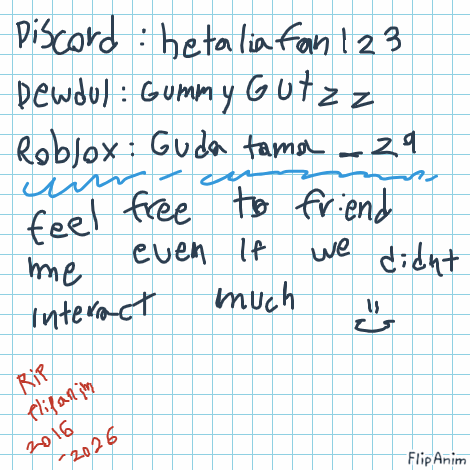 Discord : hetaliafan123
Dewdul : GummyGutzz
Roblox : Gudatama_29
feel free to friend
me even if we didnt
interact much =)
RIP
flipanim
2016
-2026
FlipAnim